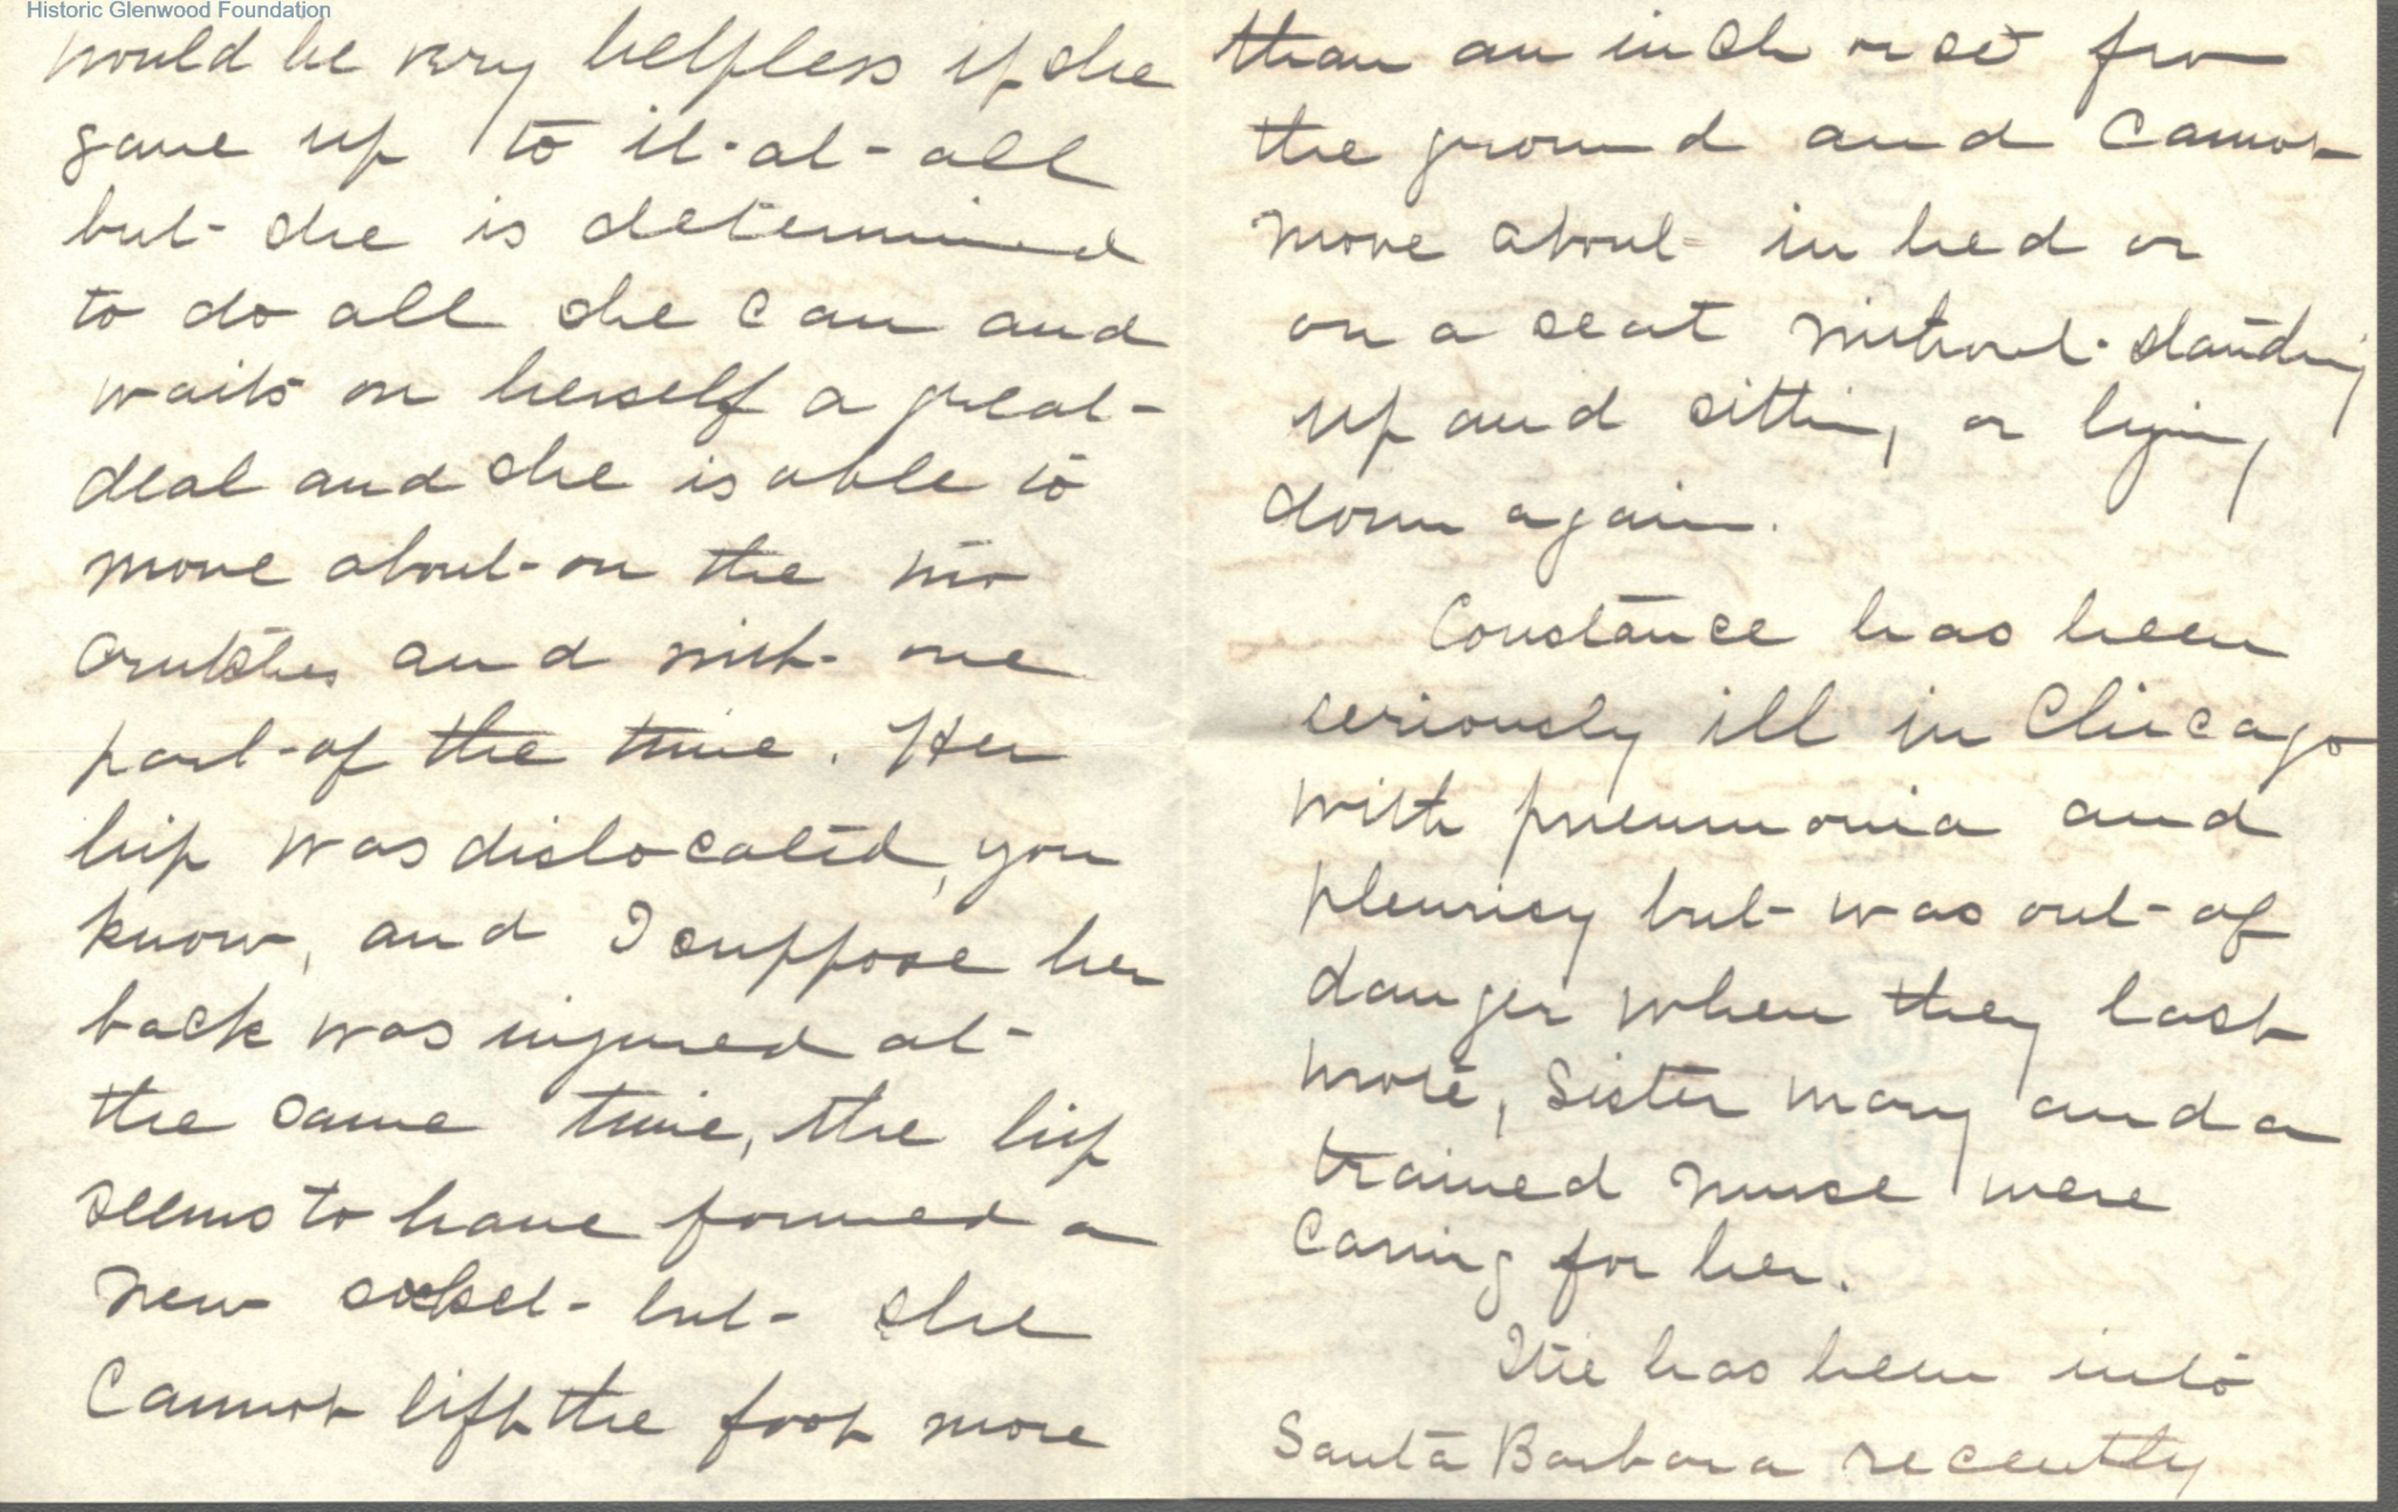 Historic Glenwood Foundation
would be very helpless if she
gave up to it at all
but she is determined
to do all she can and
waits on herself a great
deal and she is able to
move about on the two
crutches and with one
part of the time. Her
hip was dislocated, you
know, and I suppose her
back was injured at
the same time, the hip
seems to have formed a
new socket but she
cannot lift the foot more
than an inch or so from
the ground and cannot
move about in bed or
on a seat without standing
up and sitting or lying
down again.
Constance has been
seriously ill in Chicago
with pneumonia and
pleurisy but was out of
danger when they last
wrote, Sister Mary and a
trained nurse were
caring for her.
has been into
Santa Barbara recently